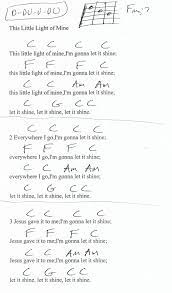 D-DU-U-DU
Fmaj7
This Little Light of Mine
C C C C
This little light of mine,I'm gonna let it shine;
F F F C
this little light of mine,I'm gonna let it shine;
C C Am Am
this little light of mine,I'm gonna let it shine;
C G C C
let it shine, let it shine, let it shine.
C C C C
2 Everywhere I go,I'm gonna let it shine;
F F F C
everywhere I go,I'm gonna let it shine;
C C Am Am
everywhere I go,I'm gonna let it shine;
C G C C
let it shine, let it shine, let it shine.
C C C C
3 Jesus gave it to me;I'm gonna let it shine;
F F F C
Jesus gave it to me;I'm gonna let it shine;
C C Am Am
Jesus gave it to me;I'm gonna let it shine;
C G C C
let it shine, let it shine, let it shine.